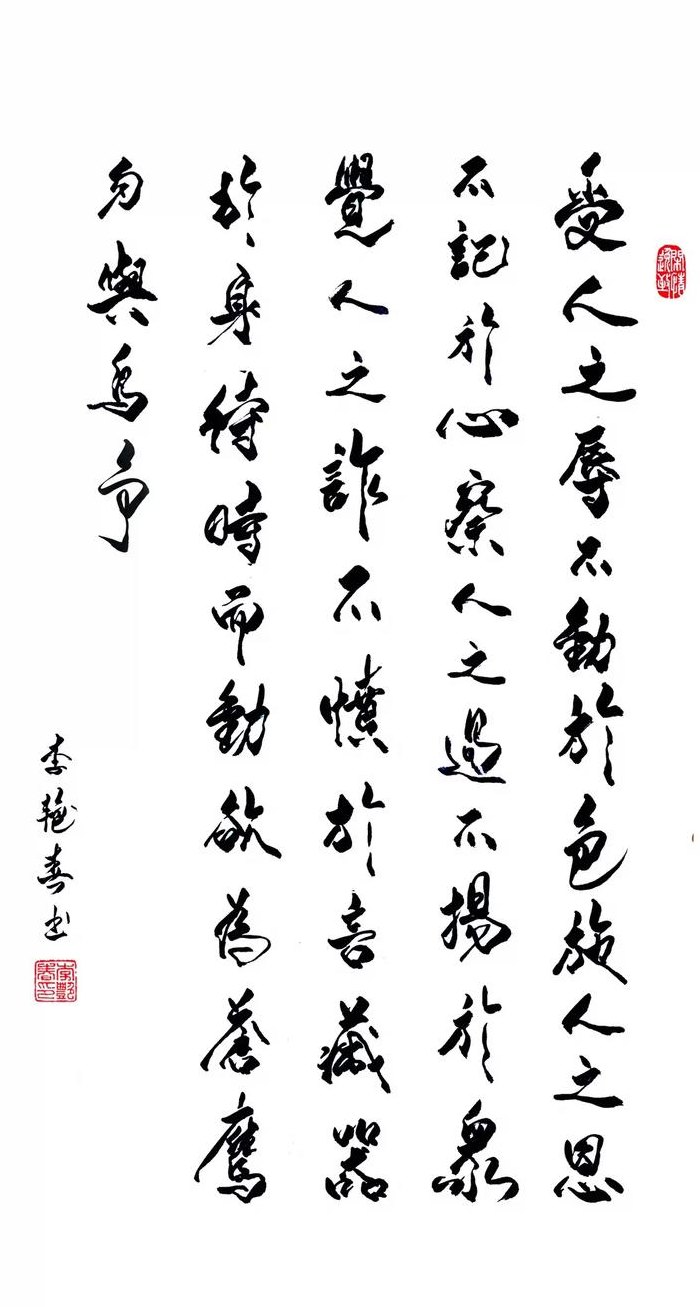 受人之辱不動於色施人之恩
不記於心察人之過不揚於眾
覺人之詐不憤於言藏器
於身待時而動欲為蒼鷹
勿與鳥爭
李艳春书
李艷春印